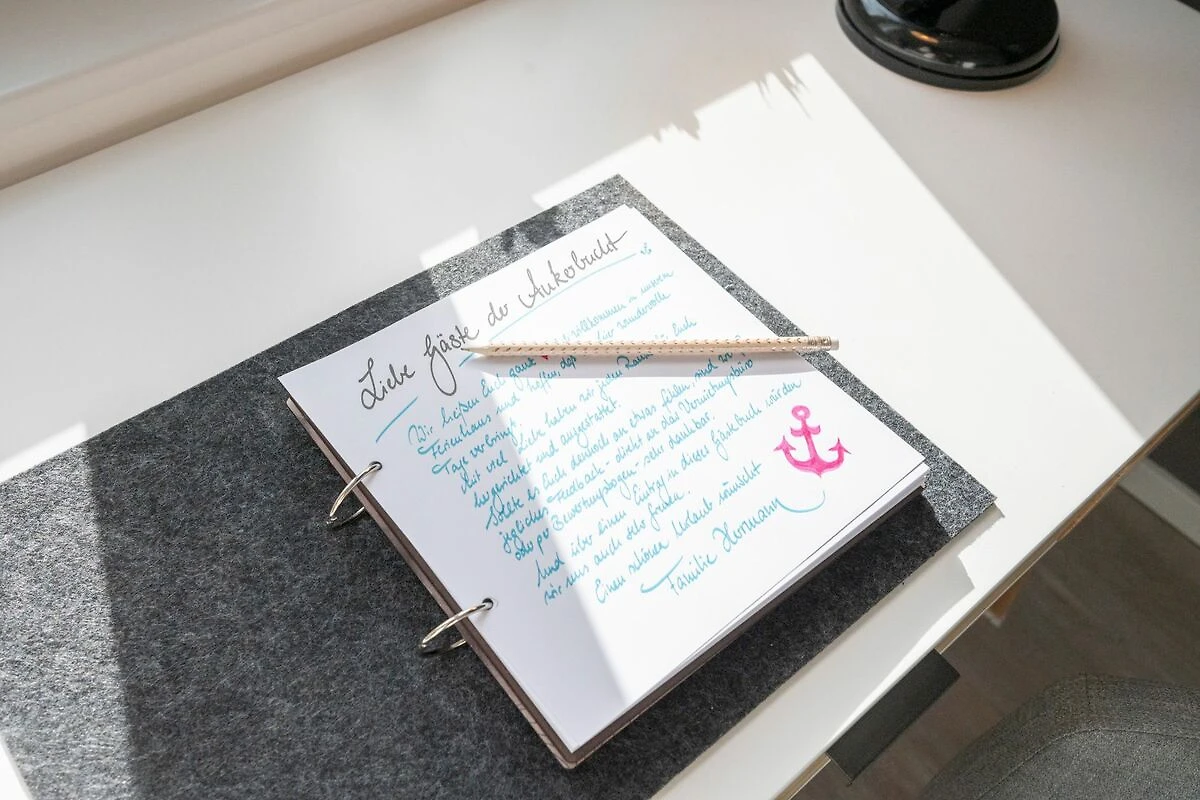 Liebe Gäste der Ankerbucht
Wir heißen Euch ganz willkommen in unserem
Ferienhaus und hoffen, das Ihr wundervolle
Tage verbringt.
Mit viel Liebe haben wir jeden Raum für Euch
hergerichtet und ausgestattet.
Sollte es Euch dennoch an etwas fehlen, sind wir
jegliches Feedback - direkt an das Vermietungsbüro
oder per Bewertungsbogen - sehr dankbar.
Und über einen Eintrag in dieses Gästebuch würden
wir uns auch sehr freuen.
Einen schönen Urlaub wünscht
Familie Hermann